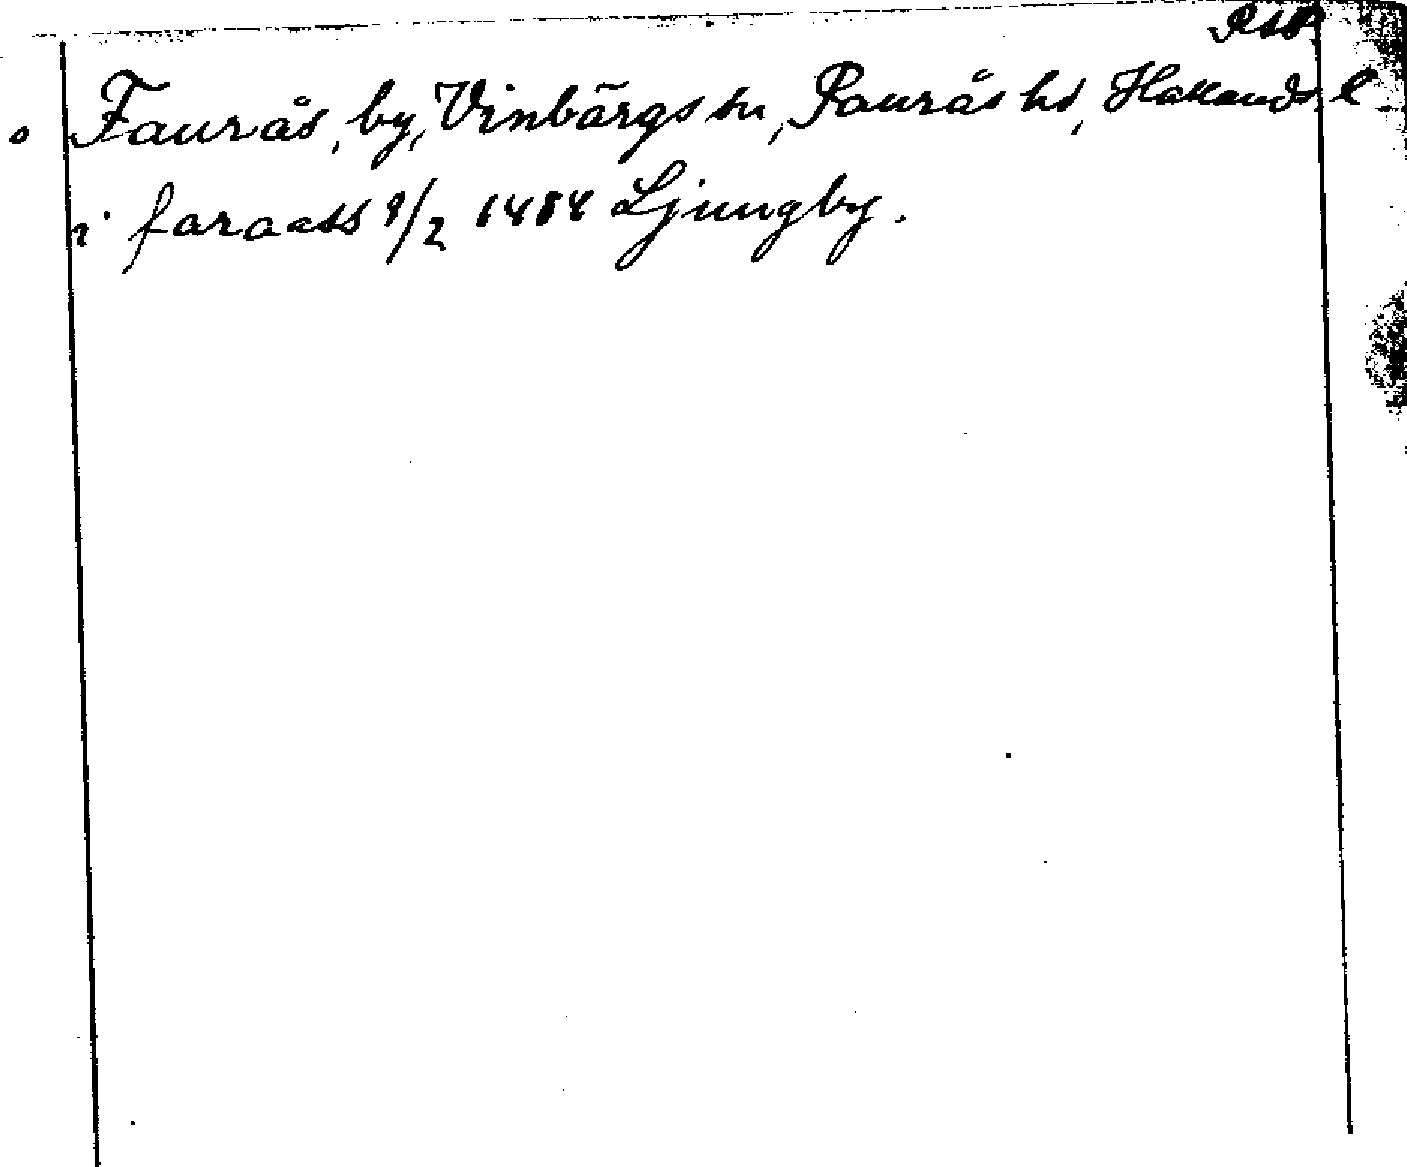 Faurås, by, Vinbärgs sn, Faurås hd, Hallands l
i faraass 9/2 1484 Ljungby.